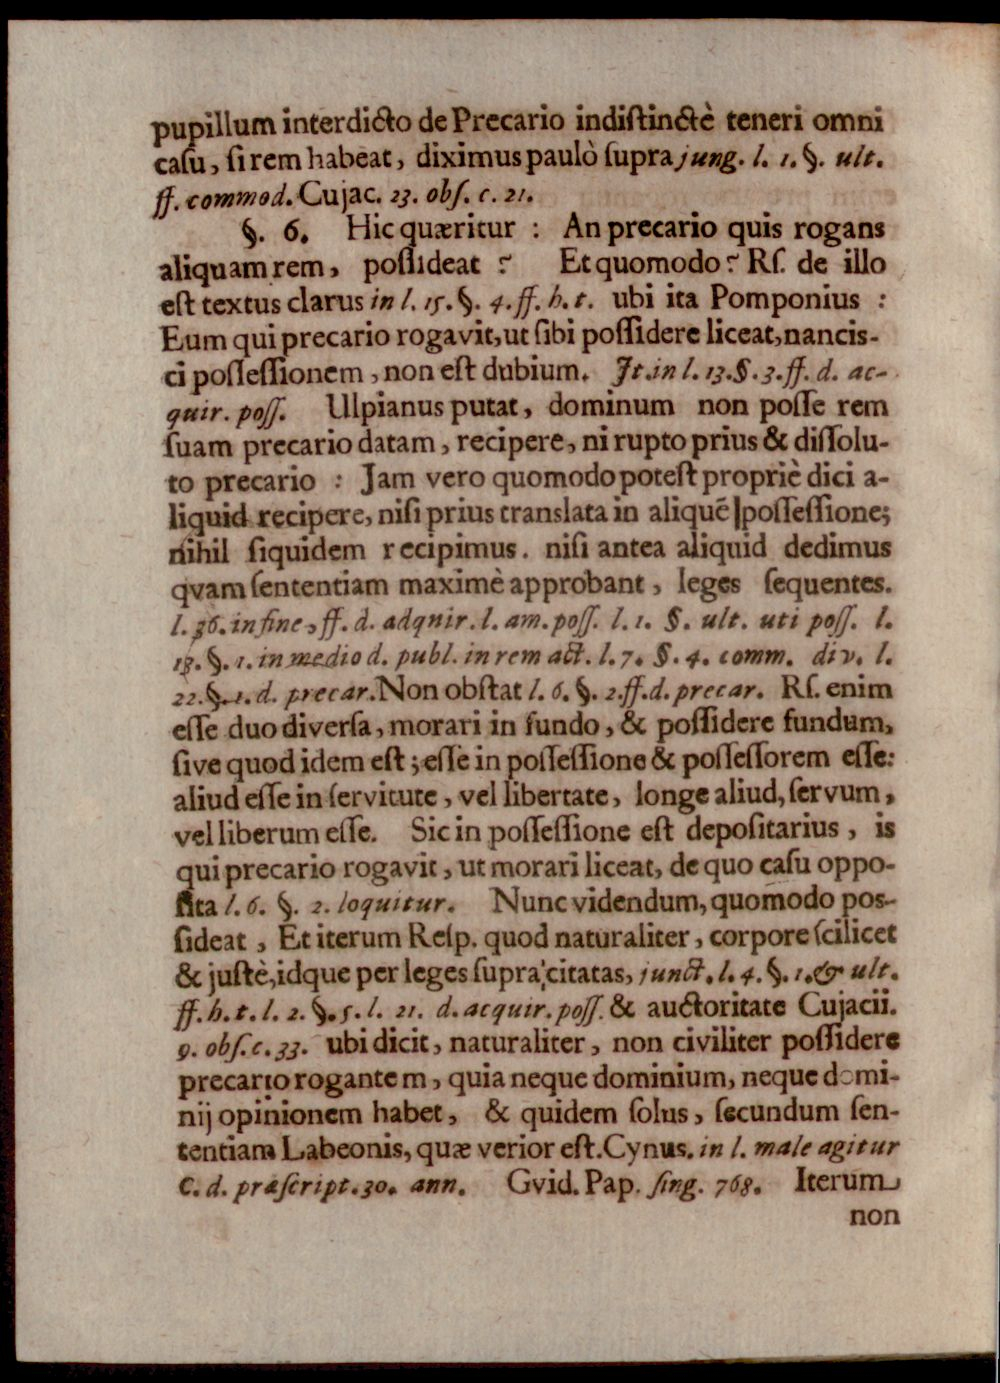 pupillum interdicto de Precario indiſtinctè teneri omni
caſu, ſi rem habeat, diximus paulò ſupra jung. l. 1. §. ult.
ff. commod. Cujac. 23. obſ. c. 21.
§. 6. Hic quæritur : An precario quis rogans
aliquam rem, poſſideat ? Et quomodo ? Rſ. de illo
eſt textus clarus in l. 15. §. 4. ff. h. t. ubi ita Pomponius :
Eum qui precario rogavit, ut ſibi poſſidere liceat, nancis-
ci poſſeſſionem, non eſt dubium. It. in l. 13. §. 3. ff. d. ac-
quir. poſſ. Ulpianus putat, dominum non poſſe rem
ſuam precario datam, recipere, ni rupto prius & diſſolu-
to precario : Jam vero quomodo poteſt propriè dici a-
liquid recipere, niſi prius translata in aliquē poſſeſſione;
nihil ſiquidem recipimus. niſi antea aliquid dedimus
qvam ſententiam maximè approbant, leges ſequentes.
l. 36. in fine, ff. d. adqnir. l. am. poſſ. l. 1. §. ult. uti poſſ. l.
13. §. 1. in medio d. publ. in rem act. l. 7. §. 4. comm. div. l.
22. §. 1. d. precar. Non obſtat l. 6. §. 2. ff. d. precar. Rſ. enim
eſſe duo diverſa, morari in fundo, & poſſidere fundum,
ſive quod idem eſt; eſſe in poſſeſſione & poſſeſſorem eſſe:
aliud eſſe in ſervitute, vel libertate, longe aliud, ſervum,
vel liberum eſſe. Sic in poſſeſſione eſt depoſitarius, is
qui precario rogavit, ut morari liceat, de quo caſu oppo-
ſita l. 6. §. 2. loquitur. Nunc videndum, quomodo pos-
ſideat, Et iterum Reſp. quod naturaliter, corpore ſcilicet
& juſtè, idque per leges ſupra citatas, junct. l. 4. §. 1. & ult.
ff. h. t. l. 2. §. 5. l. 21. d. acquir. poſſ. & auctoritate Cujacii.
9. obſ. c. 33. ubi dicit, naturaliter, non civiliter poſſidere
precario rogantem, quia neque dominium, neque domi-
nij opinionem habet, & quidem ſolus, ſecundum ſen-
tentiam Labeonis, quæ verior eſt. Cynus. in l. male agitur
C. d. præſcript. 30. ann. Gvid. Pap. ſing. 768. Iterum
non